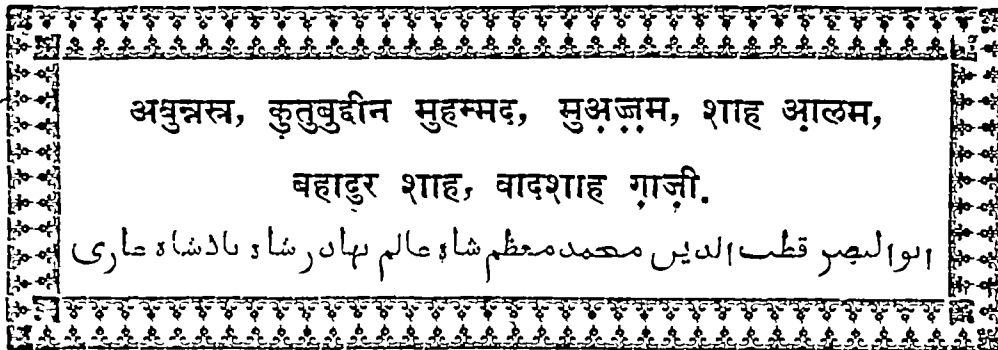 अबुन्नस्र, कुतुबुद्दीन मुहम्मद, मुअ़ज़्ज़म, शाह आ़लम,
बहादुर शाह, वादशाह ग़ाज़ी.
ابوالنصر قطب الدين محمد معظم شاه عالم بهادر شاه بادشاه غازى